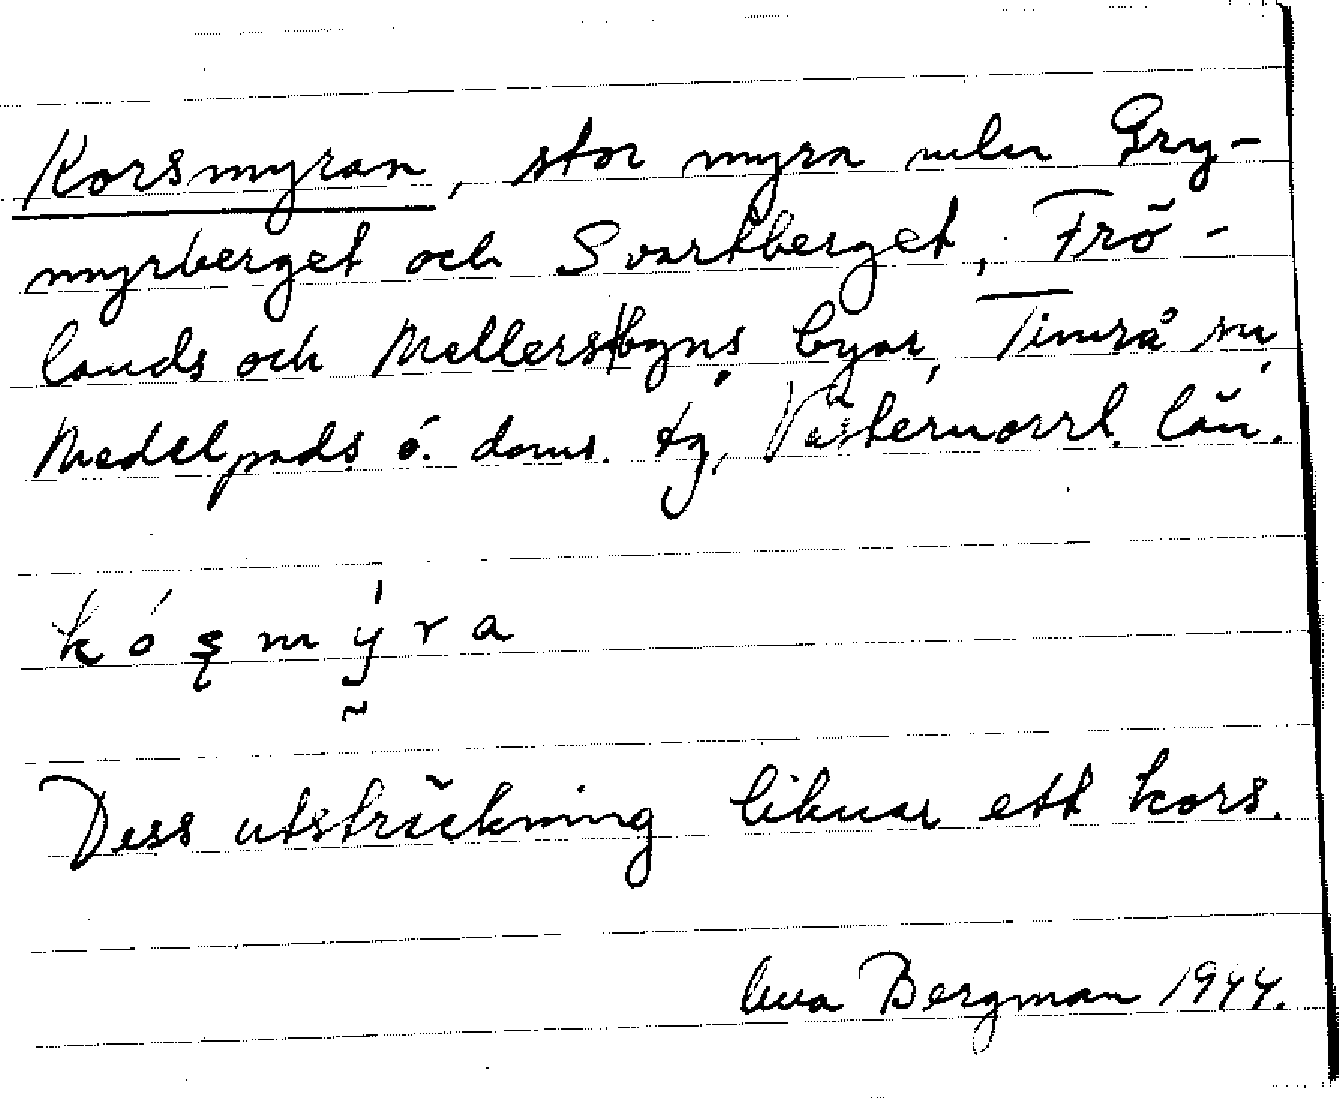 Korsmyran, stor myra mellan Gry-
myrberget och Svartberget, Frö-
lands och Mellersbyns byar, Timrå sn,
Medelpads ö. doms. tg, Västernorrl. län.
k ó s m ý r a
Dess utsträckning liknar ett kors.
Bergman 1944.